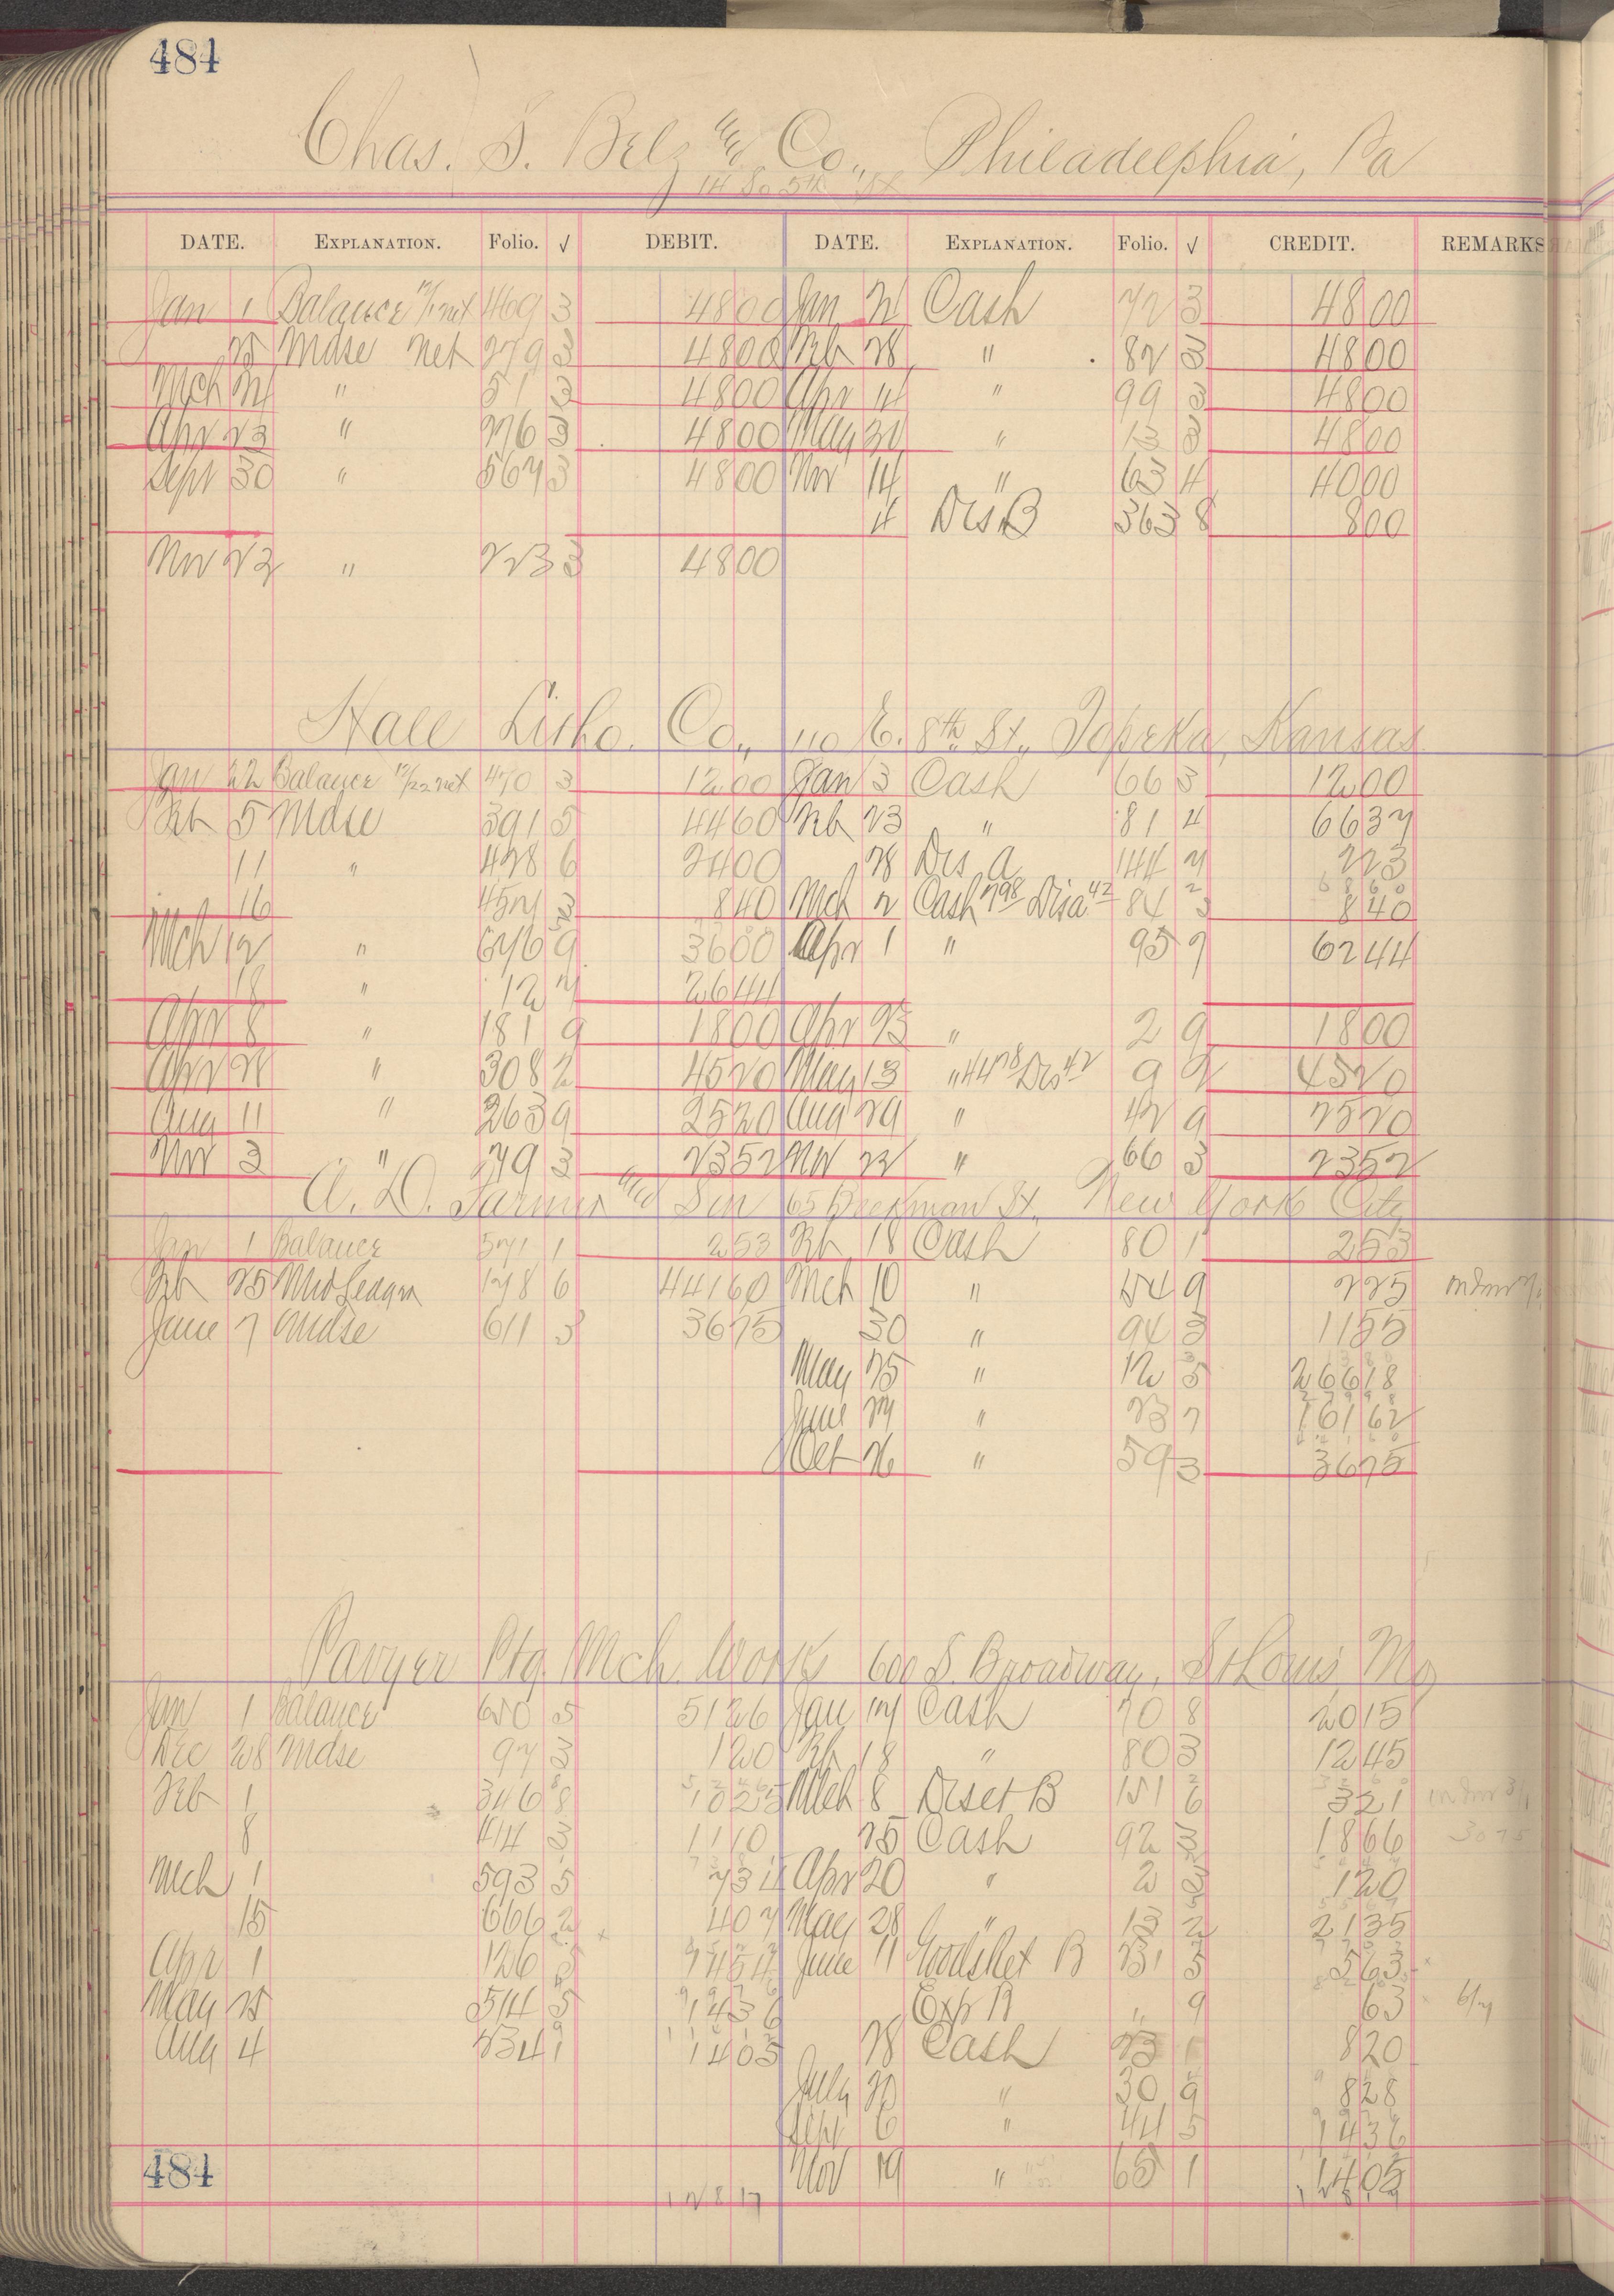 484
Chas. S. Belz & Co., Philadelphia, Pa
14 So 5th St
DATE. EXPLANATION. Folio. √ DEBIT. DATE. EXPLANATION. Folio. √ CREDIT. REMARKS
Jan 1 Balance net 469 3 4800 Jan Cash 72 3 4800
25 Mdse net 279 3 4800 Feb 28 " 82 3 4800
Mch 24 " 51 3 4800 Apr 14 " 99 3 4800
Apr 23 " 276 3 4800 May 31 " 13 3 4800
Sept 30 " 567 3 4800 Nov 14 " 63 4 4000
4 Dis B 363 8 800
Nov 23 " 223 3 4800
Hall Litho. Co., 110 E. 8th St., Topeka, Kansas
Jan 22 Balance 12/22 net 470 3 1200 Jan 3 Cash 66 3 1200
Feb 5 Mdse 391 5 4460 Feb 23 " 81 4 6637
11 " 428 6 2400 28 Dis A 144 7 223
16 457 3 840 Mch 2 Cash 798 Dis a 42 84 3 840
Mch 12 " 646 9 3600 Apr 1 " 95 7 6244
18 " 12 7 2644
Apr 8 " 181 9 1800 Apr 23 " 2 9 1800
Apr 28 " 308 2 4520 May 13 " 4478 Dis 42 9 2 4520
Aug 11 " 263 9 2520 Aug 29 " 42 9 2520
Nov 3 " 79 3 2352 Nov 22 " 66 3 2352
A. D. Farmer & Son 63 Beekman St., New York City
Jan 1 Balance 571 1 253 Feb 18 Cash 80 1 253
Feb 25 178 6 44160 Mch 10 " 9 225
June 7 Mdse 611 3 3675 30 " 94 3 1155
May 25 " 12 5 26618
June 27 " 23 7 16162
Oct 26 " 59 3 3675
Pavyer Ptg. Mch. Works 600 S. Broadway, St Louis, Mo
Jan 1 Balance 5 5126 Jan 17 Cash 70 8 2015
Dec 28 Mdse 97 3 120 Feb 18 " 80 3 1245
Feb 1 346 8 1025 Mch 8 Disct B 151 6 321
8 414 3 1110 25 Cash 92 3 1866
Mch 1 593 5 734 Apr 20 " 2 2 120
15 666 2 407 May 28 " 13 2 2135
Apr 1 126 5 1454 June 11 B 231 3 563
May 25 514 5 1436 Exp B " 9 63 6/7
Aug 4 234 1 1405 28 Cash 23 820
July 20 " 30 9 828
Sept 6 " 44 5 1436
484 Nov 19 " 65 1 1405
12817